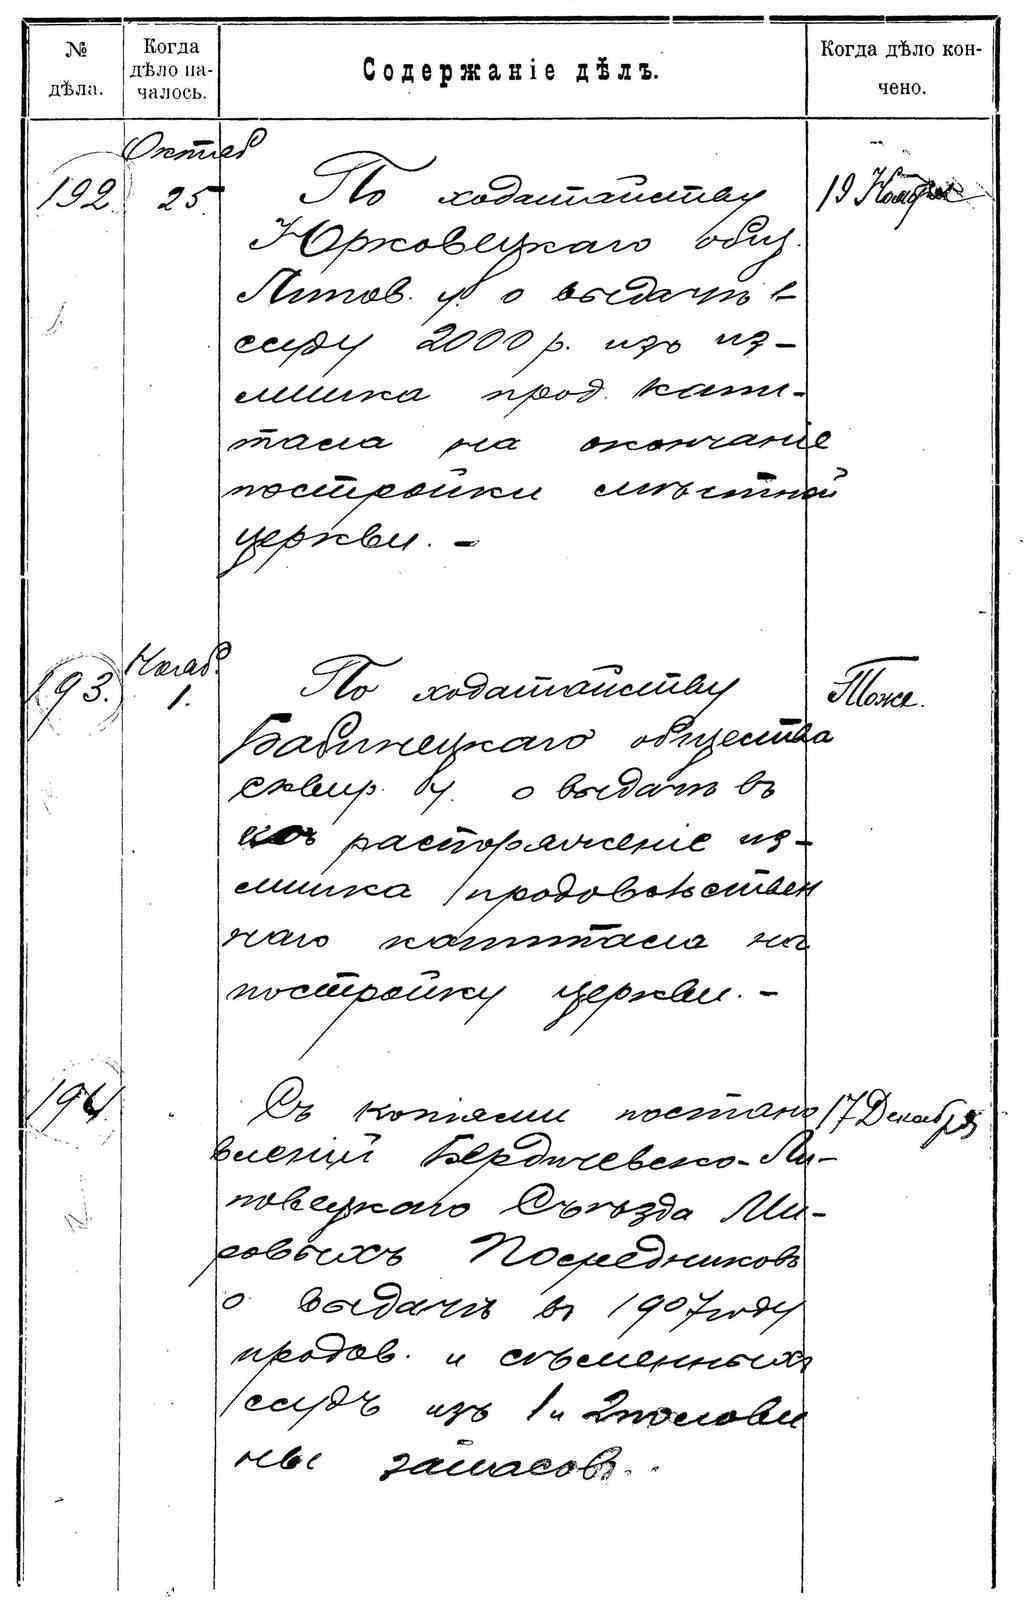 № дѣла.
Когда дѣло на-
чалось.
Содержаніе дѣлъ.
Когда дѣло кон-
чено.
Октяб
192. 25. По ходатайству 19 Ноября
Юрковецкаго общ.
Липов. у. о выдачѣ в
ссуду 2000 р. изъ из-
лишка прод. капи-
тала на окончаніе
постройки мѣстной
церкви. -
Нояб.
193. 1. По ходатайству Тоже.
Бабинецкаго общества
сквир. у. о выдачѣ въ
его распоряженіе из-
лишка продовольствен
наго капитала на
постройку церкви. -
194. Съ копіями постано 17 Декабря
вленій Бердичевско-Ли-
повецкаго Съѣзда Ми-
ровыхъ Посредниковъ
о выдачѣ въ 1907 году
продов. и сѣменныхъ
ссудъ изъ 1 и 2 полови
ны запасовъ.